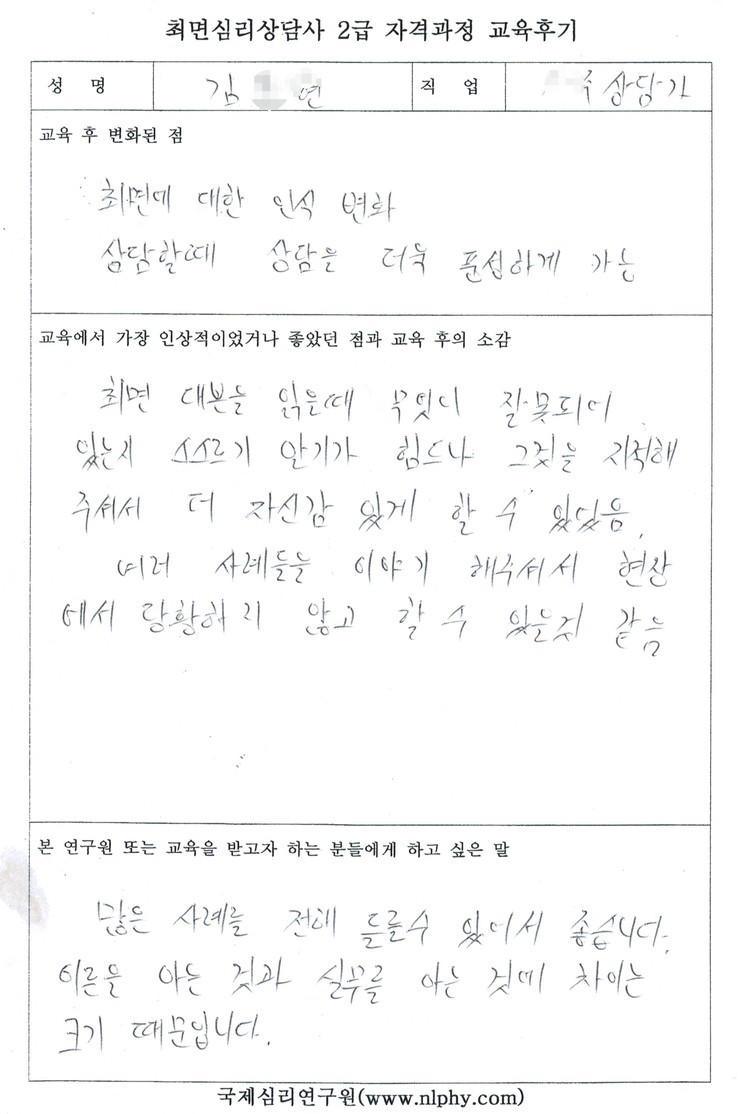 최면심리상담사 2급 자격과정 교육후기
성 명 김 연 직 업 상담가
교육 후 변화된 점
최면에 대한 인식 변화
상담할때 상담을 더욱 풍성하게 가능
교육에서 가장 인상적이었거나 좋았던 점과 교육 후의 소감
최면 대본을 읽을때 무엇이 잘못되어
있는지 스스로기 알기가 힘드나 그것을 지적해
주셔서 더 자신감 있게 할 수 있었음.
여러 사례들을 이야기 해주셔서 현장
에서 당황하지 않고 할 수 있을것 같음
본 연구원 또는 교육을 받고자 하는 분들에게 하고 싶은 말
많은 사례를 전해 들을수 있어서 좋습니다.
이론을 아는 것과 실무를 아는 것에 차이는
크기 때문입니다.
국제심리연구원(www.nlphy.com)